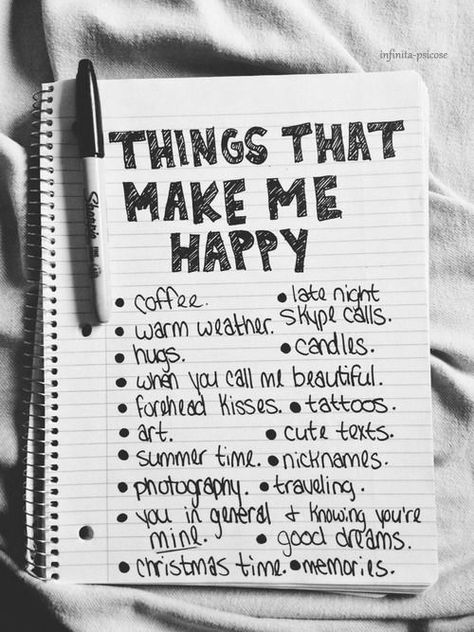 infinita-psicose
THINGS THAT
MAKE ME
HAPPY
Sharpie
• coffee. • late night
skype calls.
• warm weather.
• hugs. • candles.
• when you call me beautiful.
• forehead kisses. • tattoos.
• art. • cute texts.
• summer time. • nicknames.
• photography. • traveling.
• you in general + knowing you're
mine. • good dreams.
• christmas time. • memories.